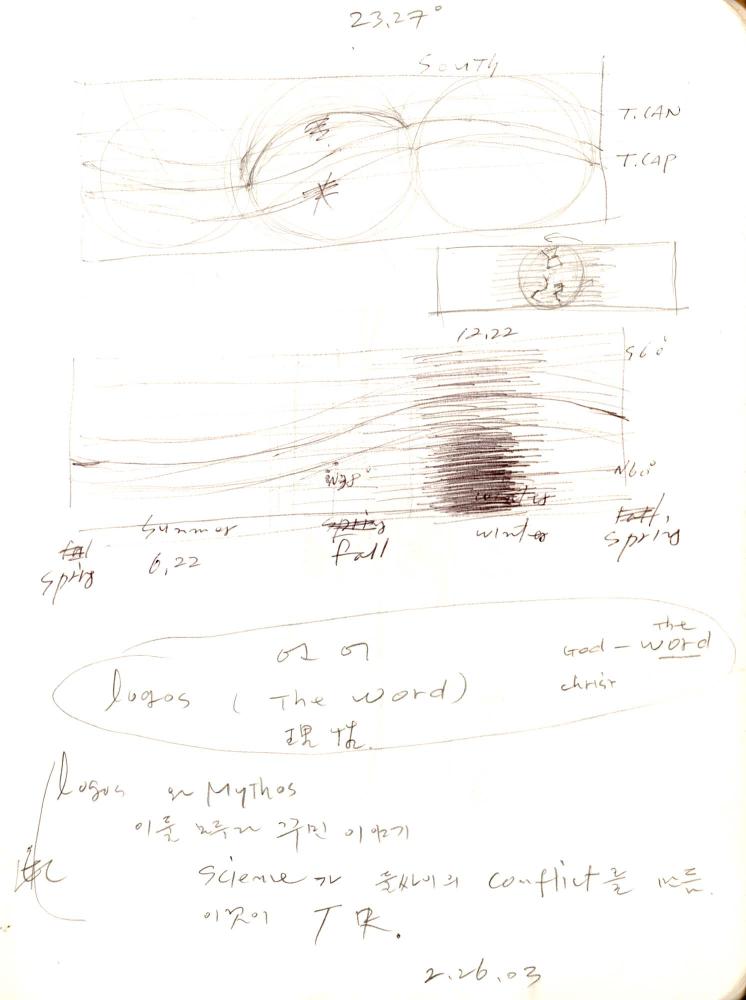 23.27°
SOUTH
T.CAN
T.CAP
12.22
S60°
N38°
N60°
winter
summer
spring
winter
fall
spring
fall
spring
fall,
spring
6.22
언어
logos ( The word )
理性.
God – The word
christ
logos 와 Mythos
이를 꾸민 이야기
Science 가 둘싸이의 conflict 를
이것이 T R.
2.26.03